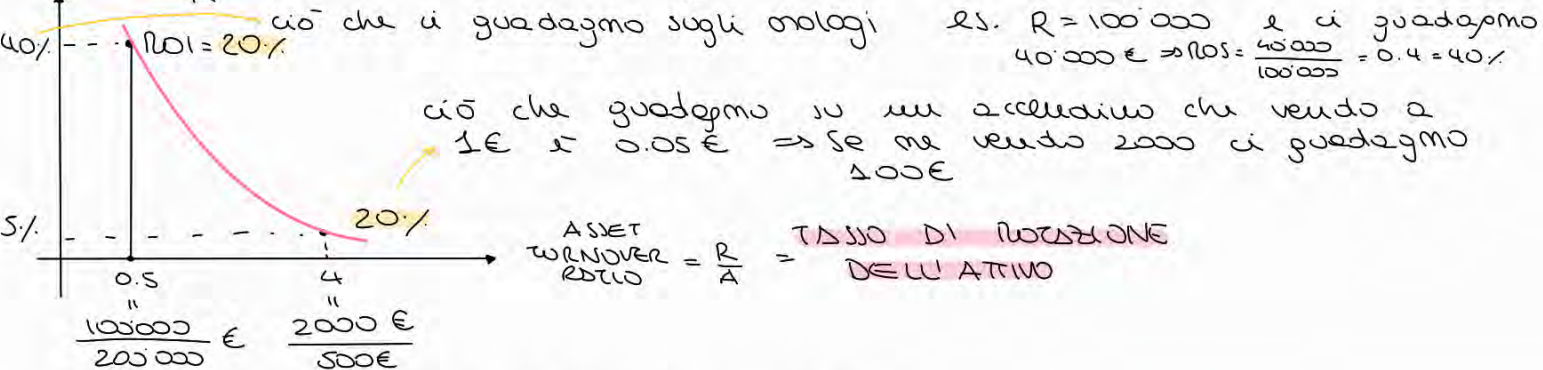 ciò che ci guadagno sugli orologi es. R = 100'000 e ci guadagno
40% ROI = 20% 40'000 € ⇒ ROS = 40'000 / 100'000 = 0.4 = 40%
ciò che guadagno su un accendino che vendo a
1€ è 0.05€ ⇒ Se ne vendo 2000 ci guadagno
100€
20%
5%
ASSET TURNOVER RATIO = R / A = TASSO DI ROTAZIONE
DELL'ATTIVO
0.5 4
" "
100'000 / 200'000 € 2000 € / 500€